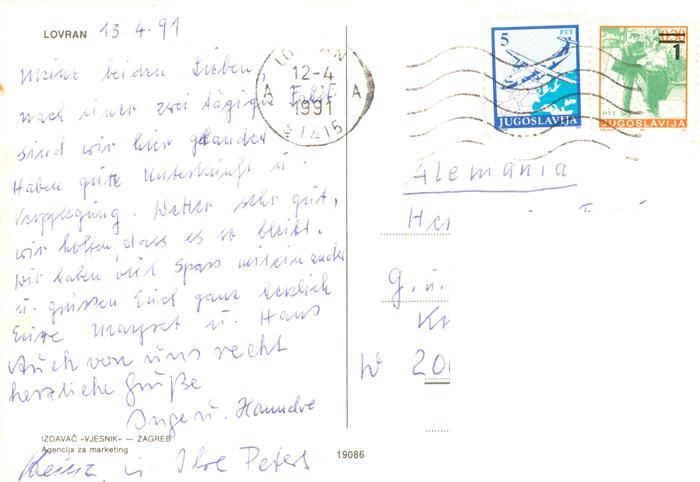 LOVRAN 13.4.91
Meine beiden Lieben,
nach einer zwei tägigen Fahrt
sind wir hier gelandet
Haben gute Unterkunft u.
Verpflegung. Wetter sehr gut,
wir hoffen, dass es so bleibt.
Wir haben viel Spass miteinander
u. grüssen Euch ganz herzlich
Eure Margret u. Hans
Auch von uns recht
herzliche Grüße
Inge u.
IZDAVAČ »VJESNIK« — ZAGREB
Agencija za marketing
u. Ilse Peters
19086
12-4
1991
51415
A
A
5
PTT
JUGOSLAVIJA
1
PTT
JUGOSLAVIJA
Alemánia
G. u.
W 20